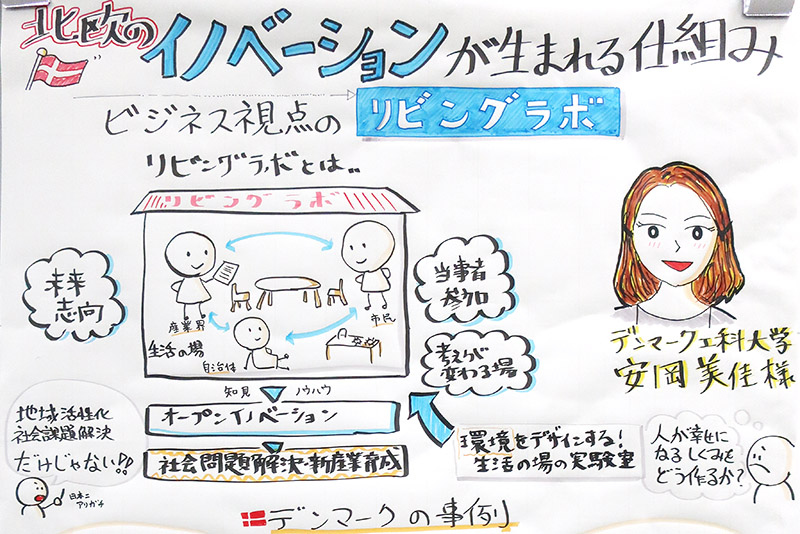 北欧の イノベーションが生まれる仕組み
ビジネス視点の リビングラボ
リビングラボとは..
リビングラボ
未来
志向
産業界
市民
生活の場
自治体
当事者
参加
考えが
変わる場
知見 ノウハウ
オープンイノベーション
社会問題解決・新産業育成
地域活性化
社会課題解決
だけじゃない!!
日本ニ
アリガチ
環境をデザインする!
生活の場の実験室
人が幸せに
なるしくみを
どう作るか?
デンマーク工科大学
安岡美佳様
デンマークの事例